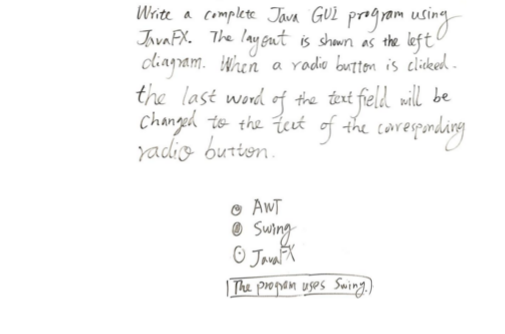 Write a complete Java GUI program using
JavaFX. The layout is shown as the left
diagram. When a radio button is clicked.
the last word of the text field will be
changed to the text of the corresponding
radio button.
AWT
Swing
JavaFX
The program uses Swing.